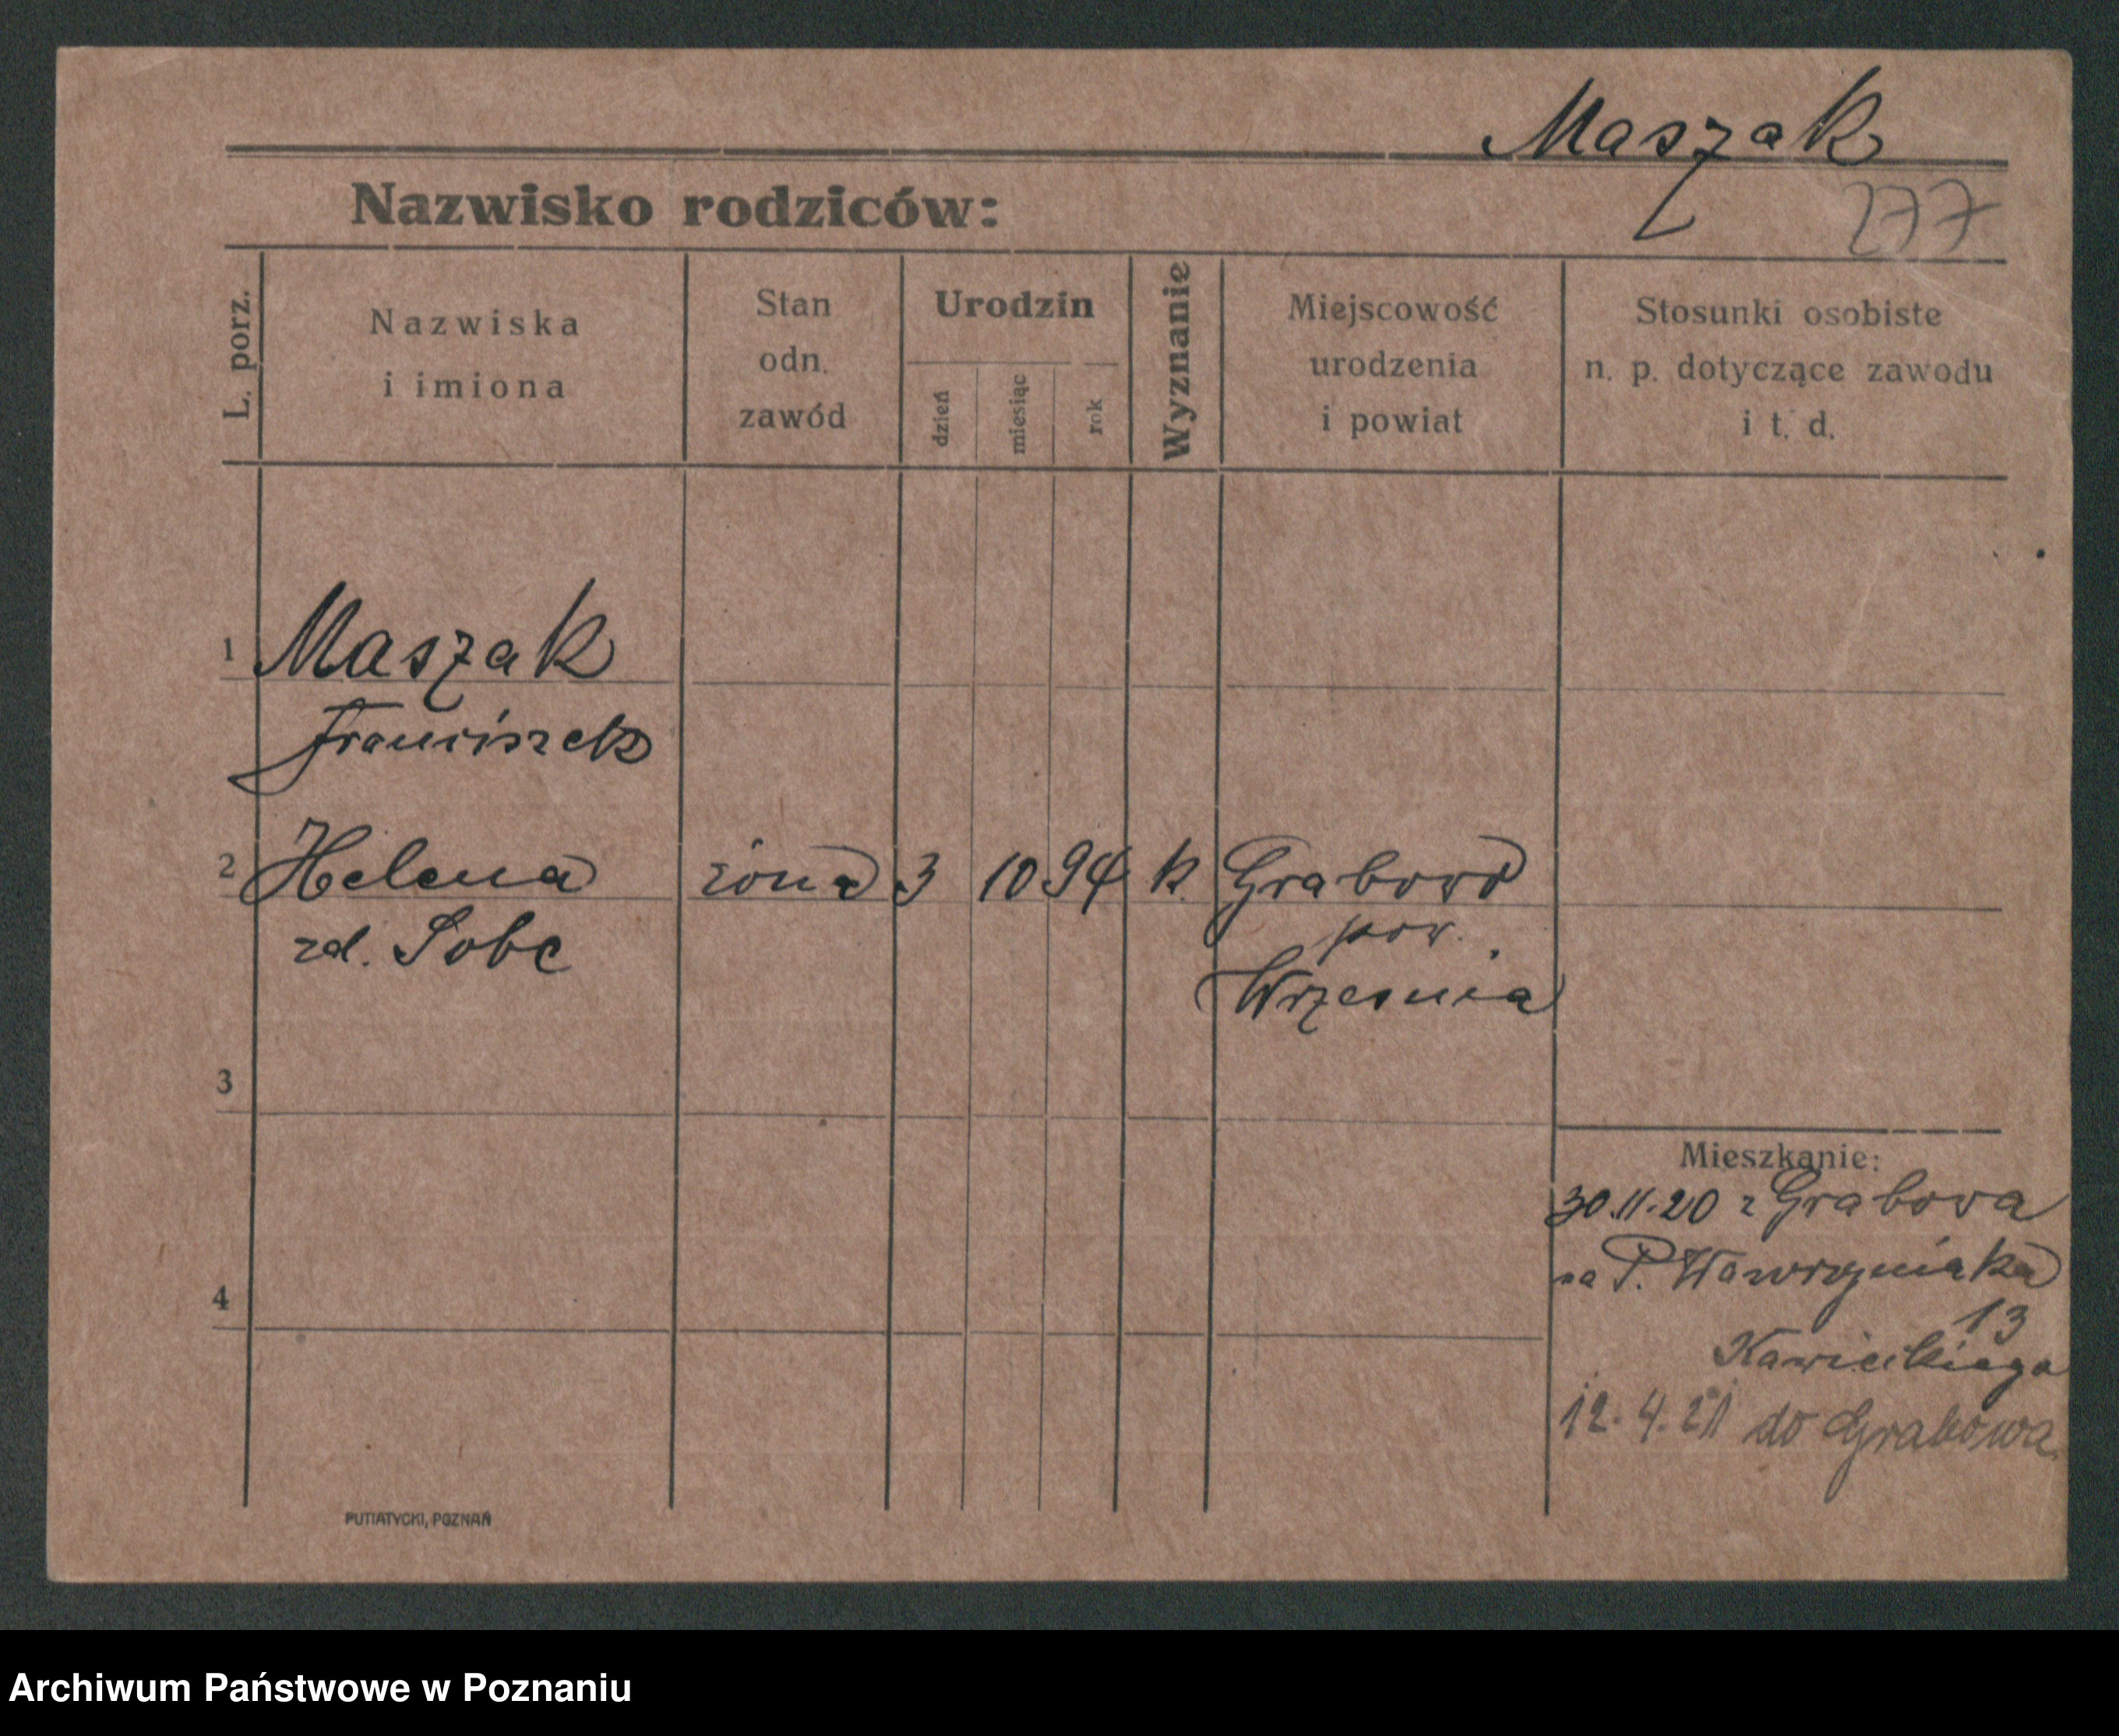 Maszak
277
Nazwisko rodziców:
L. porz.
Nazwiska
i imiona
Stan
odn.
zawód
Urodzin
dzień
miesiąc
rok
Wyznanie
Miejscowość
urodzenia
i powiat
Stosunki osobiste
n. p. dotyczące zawodu
i t. d.
1 Maszak
Franciszek
2 Helena żona 3 10 94 k. Grabowo
zd. Sobc pow.
Wrzesnia
3
4
Mieszkanie:
30.11.20 z Grabowa
na P. Wawrzyniaka
13
Kawieckiego
12.4.21 do Grabowa
PUTIATYCKI, POZNAŃ
Archiwum Państwowe w Poznaniu